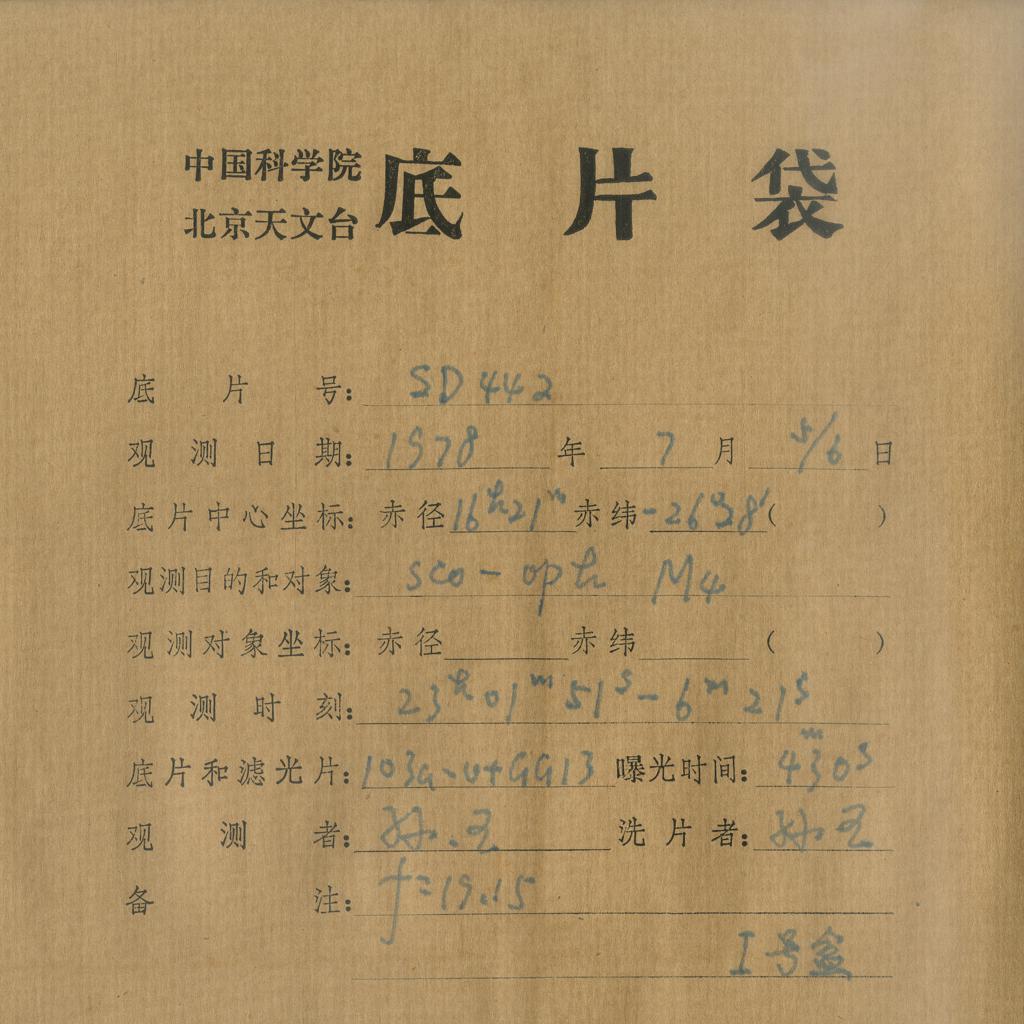 中国科学院
北京天文台
底片袋
底片号：SD442
观测日期：1978年7月5/6日
底片中心坐标：赤径16ʰ21ᵐ赤纬-26°28′（ ）
观测目的和对象：sco-oph M4
观测对象坐标：赤径 赤纬 （ ）
观测时刻：23ʰ01ᵐ51ˢ-6ᵐ21ˢ
底片和滤光片：103a-0+GG13 曝光时间：4ᵐ30ˢ
观测者：孙.王 洗片者：孙.王
备注：f=19.15
I号盒